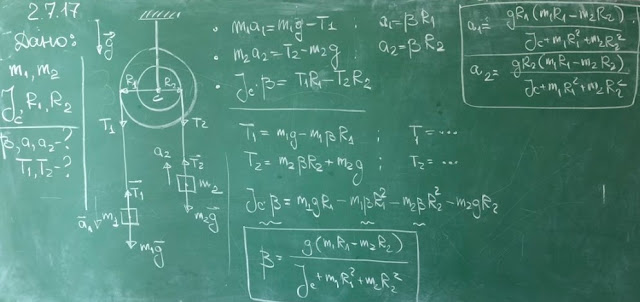 2.7.17
Дано:
m₁, m₂
J_c, R₁, R₂
β, a₁, a₂ - ?
T₁, T₂ - ?
g⃗
R₁ R₂
c
T⃗₁ T⃗₂
a₂ T⃗₂
m₂
T⃗₁ m₂g⃗
a⃗₁ m₁
m₁g⃗
• m₁a₁ = m₁g - T₁ ; a₁ = βR₁
• m₂a₂ = T₂ - m₂g ; a₂ = βR₂
• J_c · β = T₁R₁ - T₂R₂
T₁ = m₁g - m₁βR₁ ; T₁ = ...
T₂ = m₂βR₂ + m₂g ; T₂ = ...
J_cβ = m₁gR₁ - m₁βR₁² - m₂βR₂² - m₂gR₂
β = g(m₁R₁ - m₂R₂) / J_c + m₁R₁² + m₂R₂²
a₁ = gR₁(m₁R₁ - m₂R₂) / J_c + m₁R₁² + m₂R₂²
a₂ = gR₂(m₁R₁ - m₂R₂) / J_c + m₁R₁² + m₂R₂²